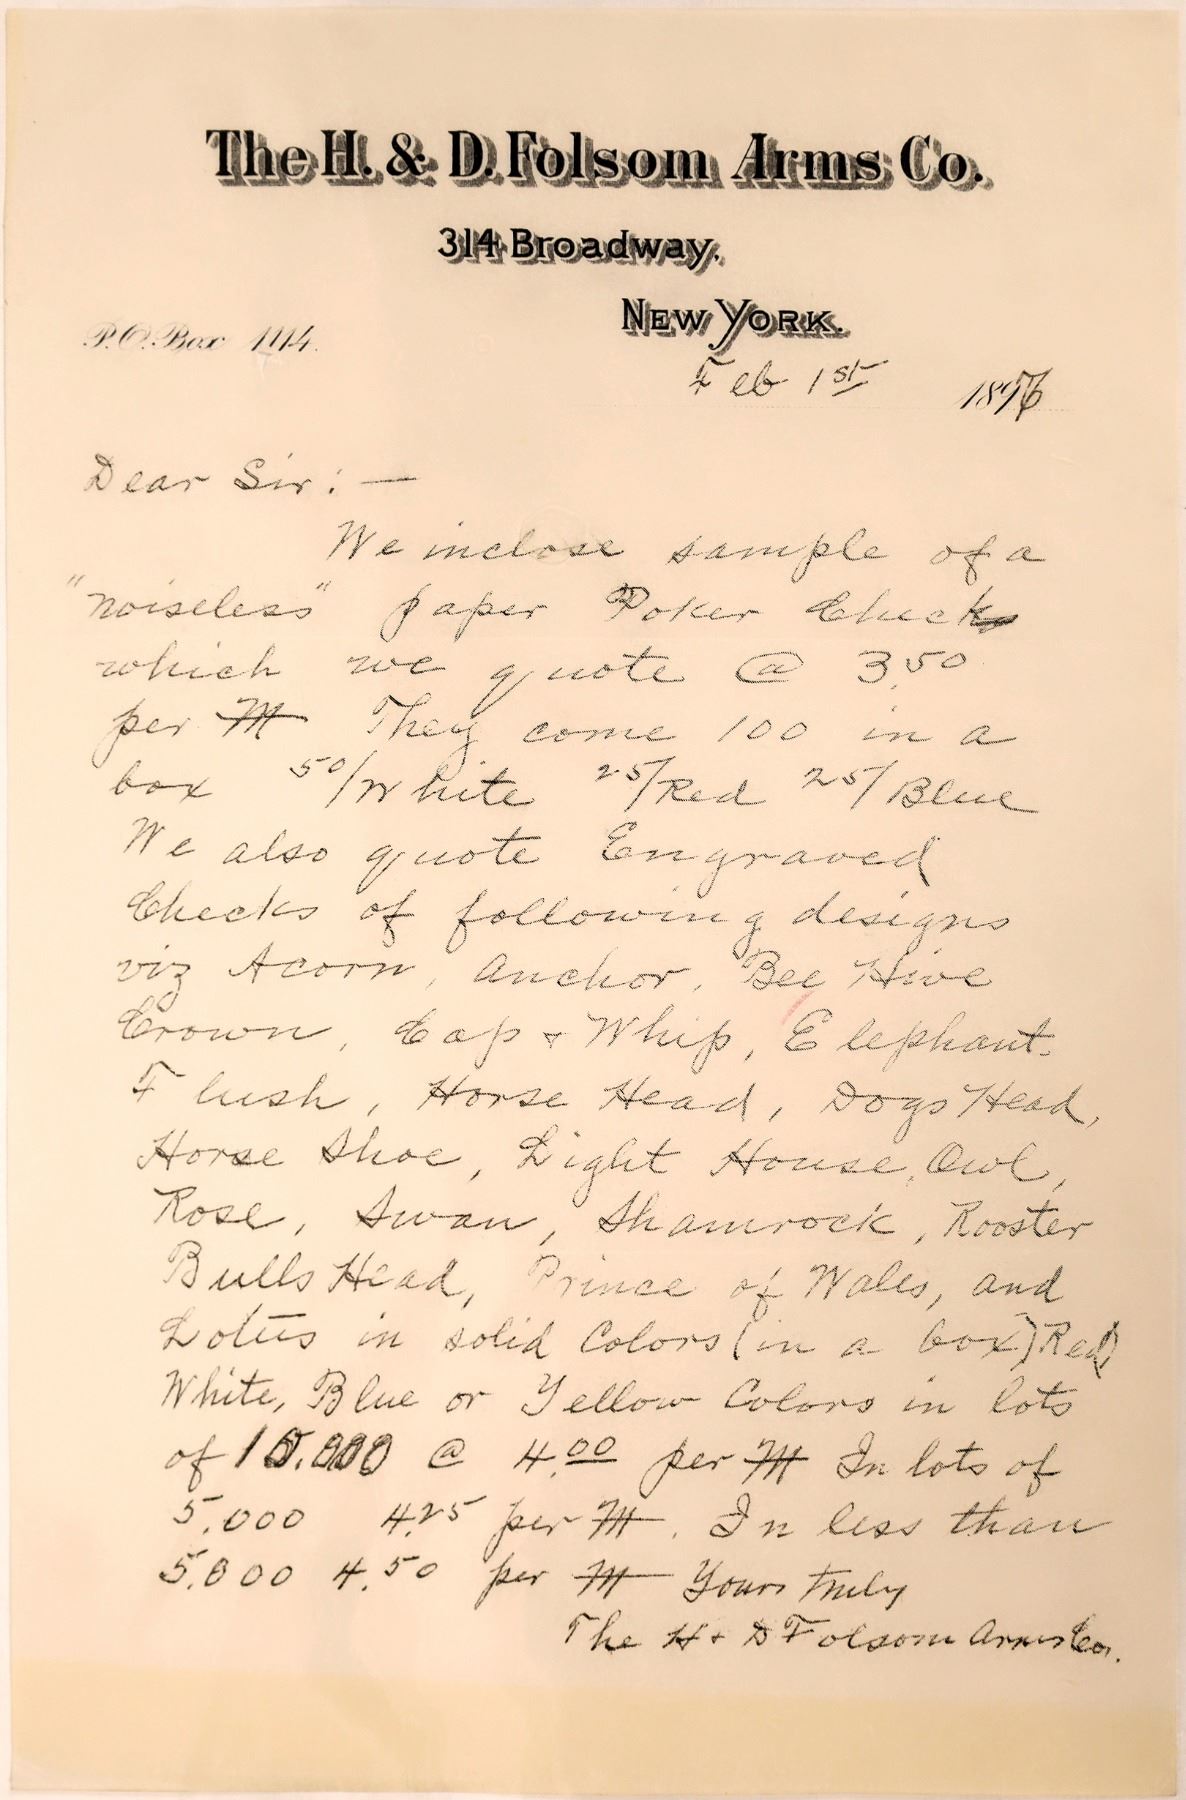 The H. & D. Folsom Arms Co.
314 Broadway.
New York.
P.O. Box 1114.
Feb 1st 1896
Dear Sir: —
We inclose sample of a
"noiseless" paper Poker Check
which we quote @ 3.50
per M They come 100 in a
box 50/White 25/Red 25/Blue
We also quote Engraved
Checks of following designs
viz Acorn, Anchor, Bee Hive
Crown, Cap + Whip, Elephant.
Flush, Horse Head, Dogs Head,
Horse Shoe, Light House, Owl,
Rose, Swan, Shamrock, Rooster
Bulls Head, Prince of Wales, and
Lotus in solid Colors (in a box) Red,
White, Blue or Yellow Colors in lots
of 10.000 @ 4.00 per M In lots of
5.000 4.25 per M. In less than
5.000 4.50 per M Yours truly
The H + D Folsom Arms Co.